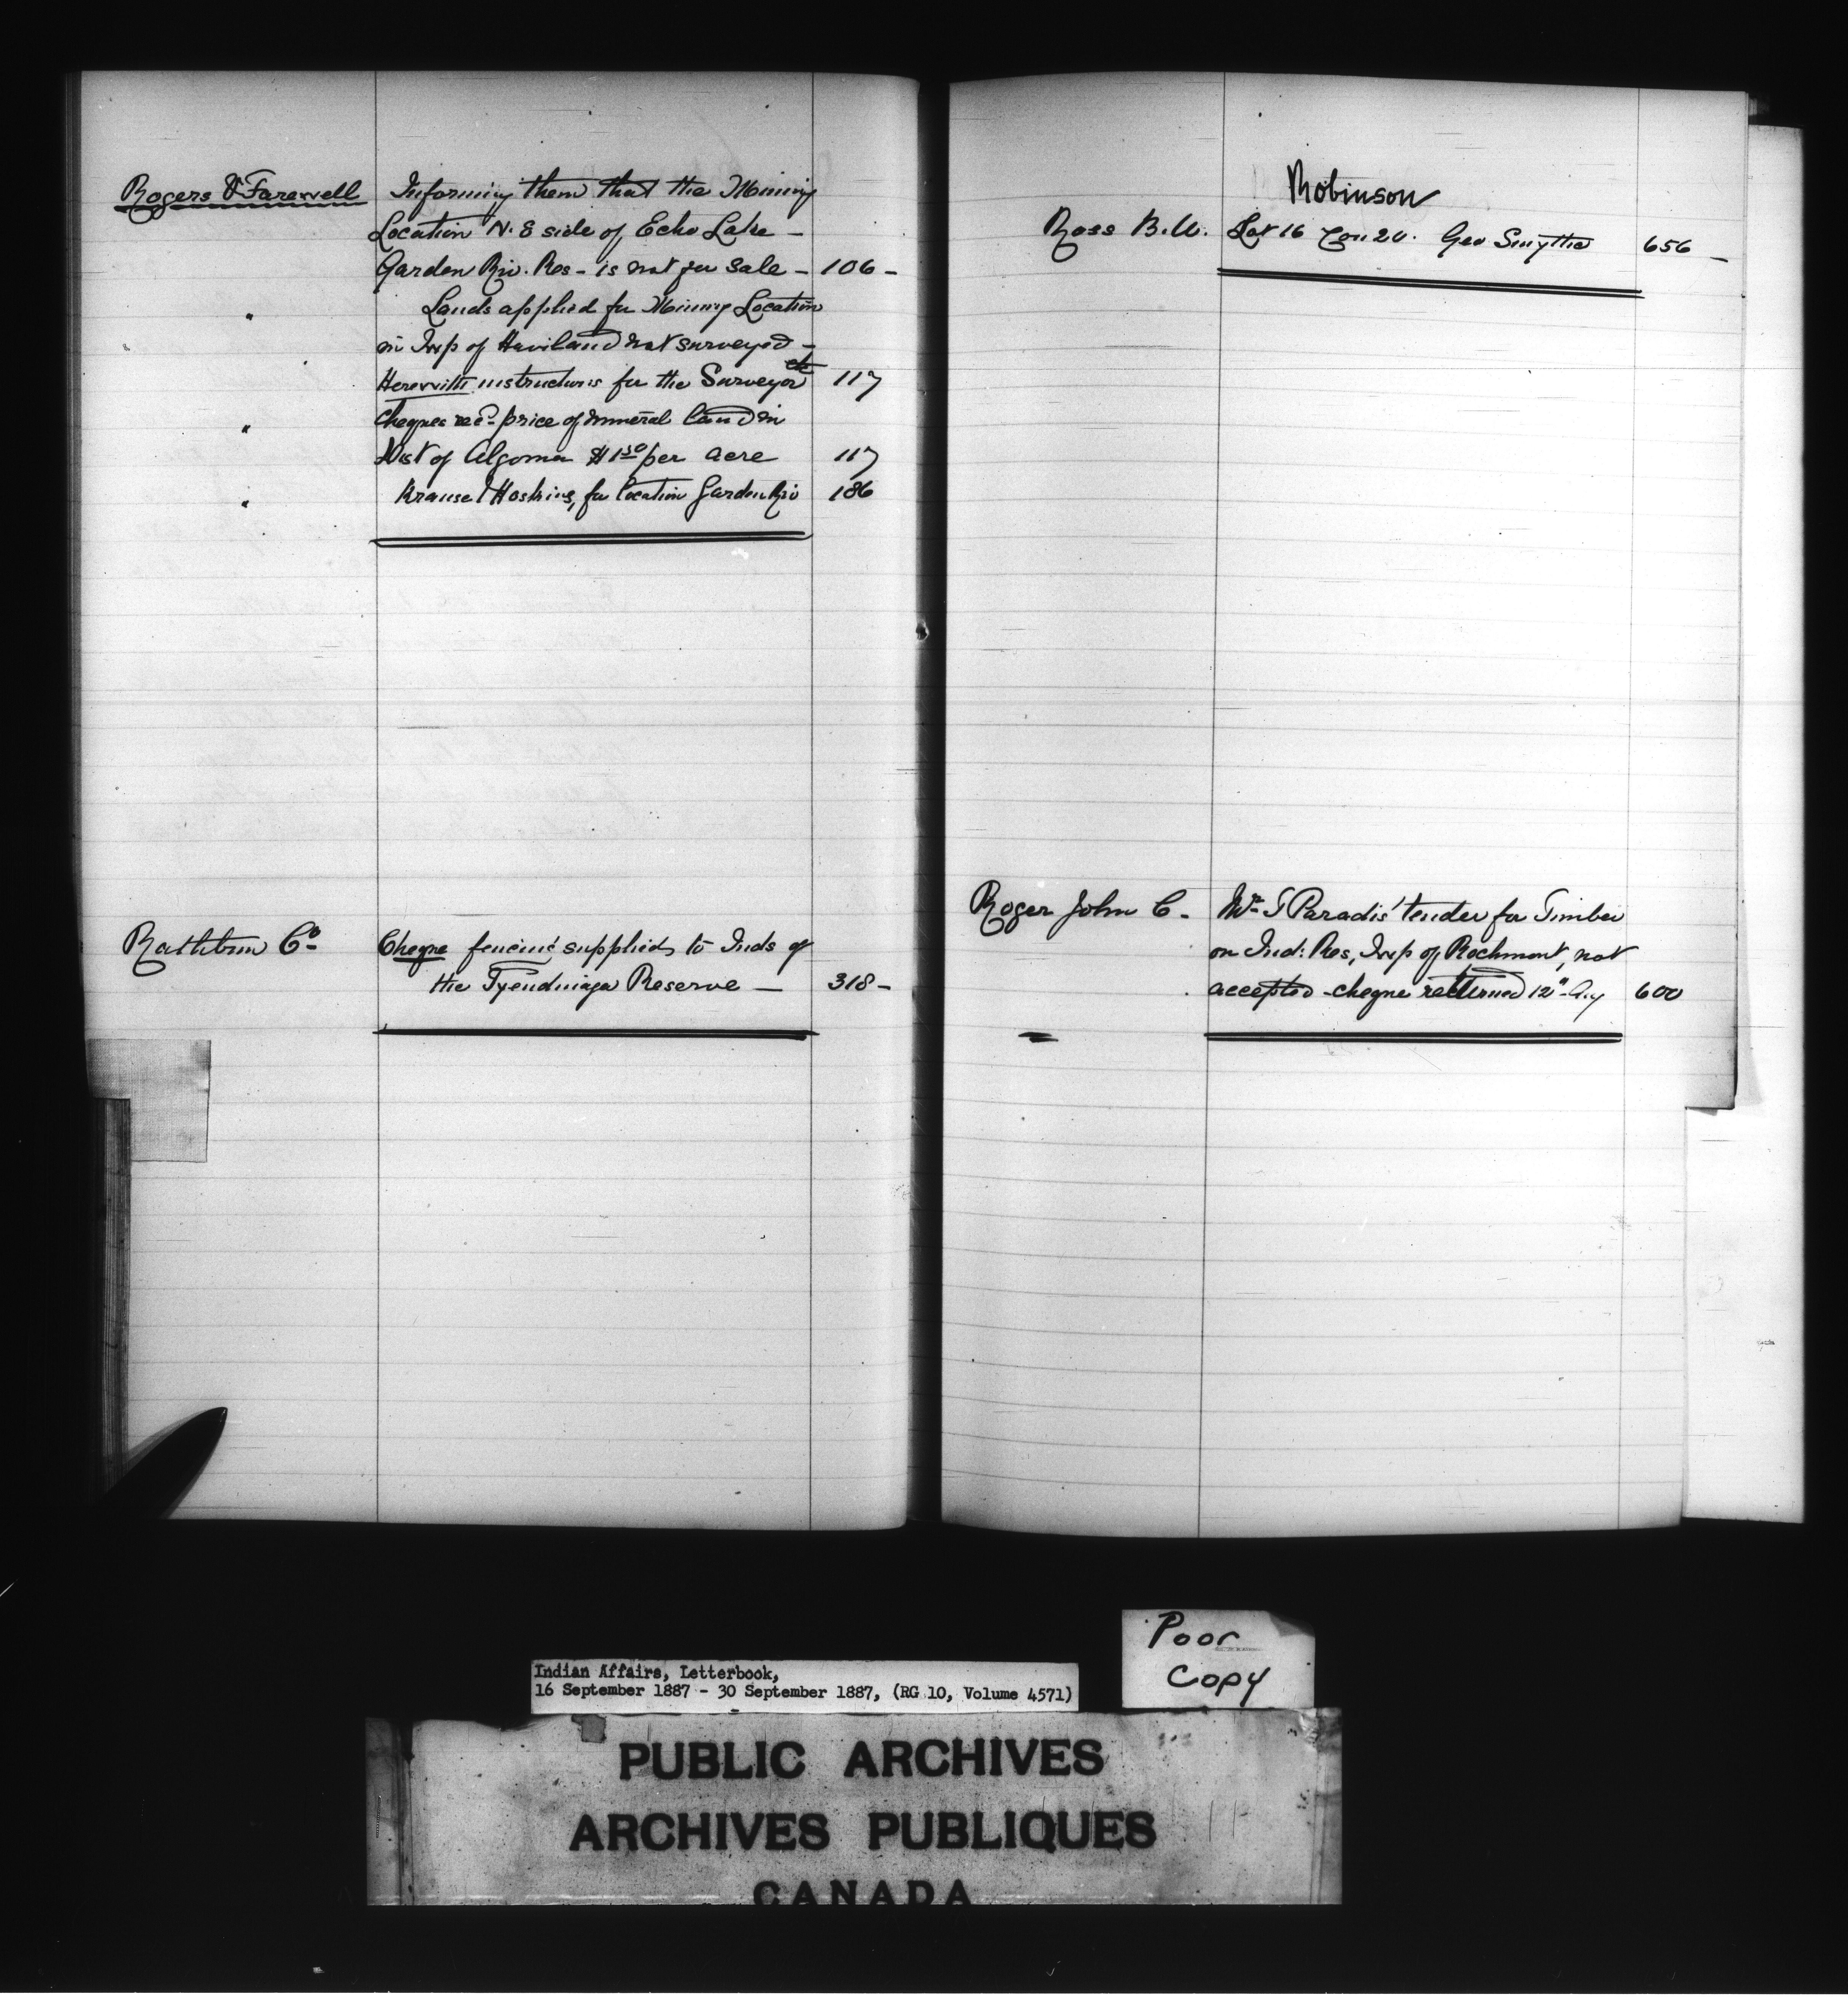 Rogers & Farewell Informing them that the Mining
Location N. 8 side of Echo Lake -
Garden Riv. Res - is not for sale - 106 -
" Lands applied for Mining Location
in Twp of Haviland not surveyed -
Herewith instructions for the Surveyor etc 117
" Cheques recd price of mineral land in
Dist of Algoma $1.50 per acre 117
" Krause & Hoskins, for location Garden Riv 186
Rathbun Co Cheque fencing supplied to Inds of
the Tyendinaga Reserve - 318 -
Robinson
Ross B.W. Lot 16 Con 20. Geo Smythe 656 -
Roger John C. Mr. T Paradis' tender for Timber
on Ind: Res, Twp of Rochmont, not
accepted - cheque returned 12" Aug 600
Poor
Copy
Indian Affairs, Letterbook,
16 September 1887 - 30 September 1887, (RG 10, Volume 4571)
PUBLIC ARCHIVES
ARCHIVES PUBLIQUES
CANADA